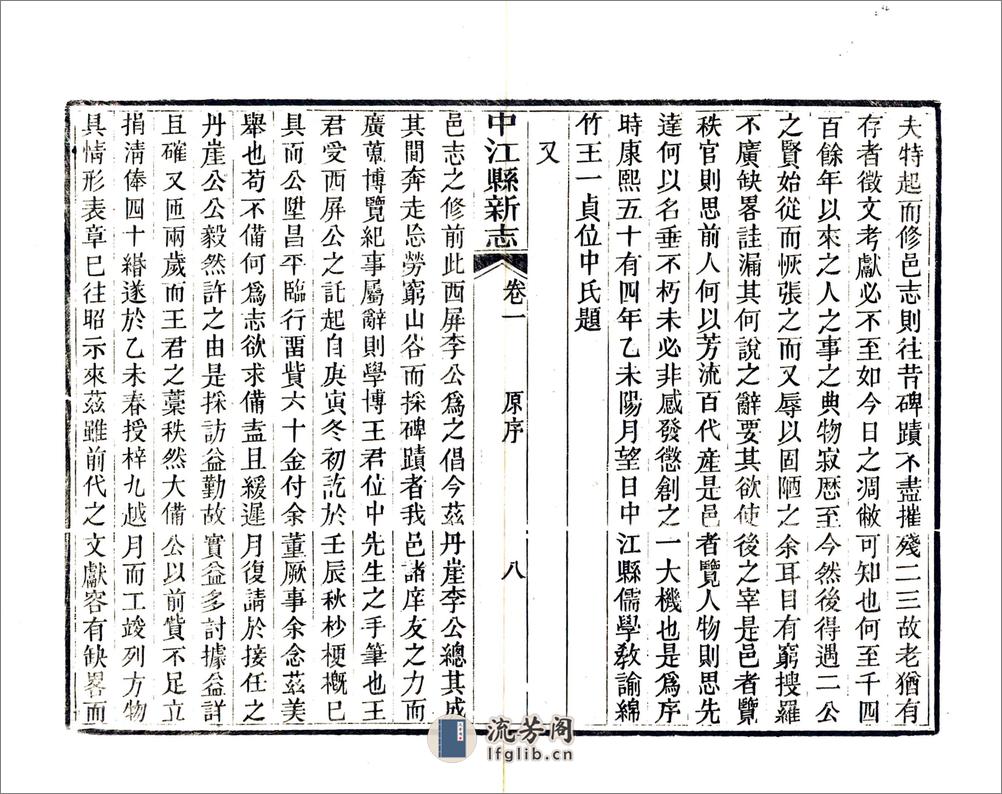 夫特起而修邑志則往昔碑蹟不盡摧殘二三故老猶有
存者徵文考獻必不至如今日之凋敝可知也何至千四
百餘年以來之人之事之典物寂厯至今然後得遇二公
之賢始從而恢張之而又辱以固陋之余耳目有窮搜羅
不廣缺畧詿漏其何說之辭要其欲使後之宰是邑者覽
秩官則思前人何以芳流百代産是邑者覽人物則思先
達何以名垂不朽未必非感發懲創之一大機也是爲序
時康熙五十有四年乙未陽月望日中江縣儒學敎諭綿
竹王一貞位中氏題
又
中江縣新志
卷一
原序
八
邑志之修前此西屏李公爲之倡今茲丹崖李公總其成
其間奔走忩勞窮山谷而採碑蹟者我邑諸庠友之力而
廣蒐博覽紀事屬辭則學博王君位中先生之手筆也王
君受西屏公之託起自庚寅冬初訖於壬辰秋杪梗槪已
具而公陞昌平臨行畱貲六十金付余董厥事余念茲美
舉也苟不備何爲志欲求備盍且緩遲月復請於接任之
丹崖公公毅然許之由是採訪益勤故實益多討據益詳
且確又匝兩歲而王君之藁秩然大備公以前貲不足立
捐淸俸四十緡遂於乙未春授梓九越月而工竣列方物
具情形表章已往昭示來茲雖前代之文獻容有缺畧而
流芳阁
lfglib.cn